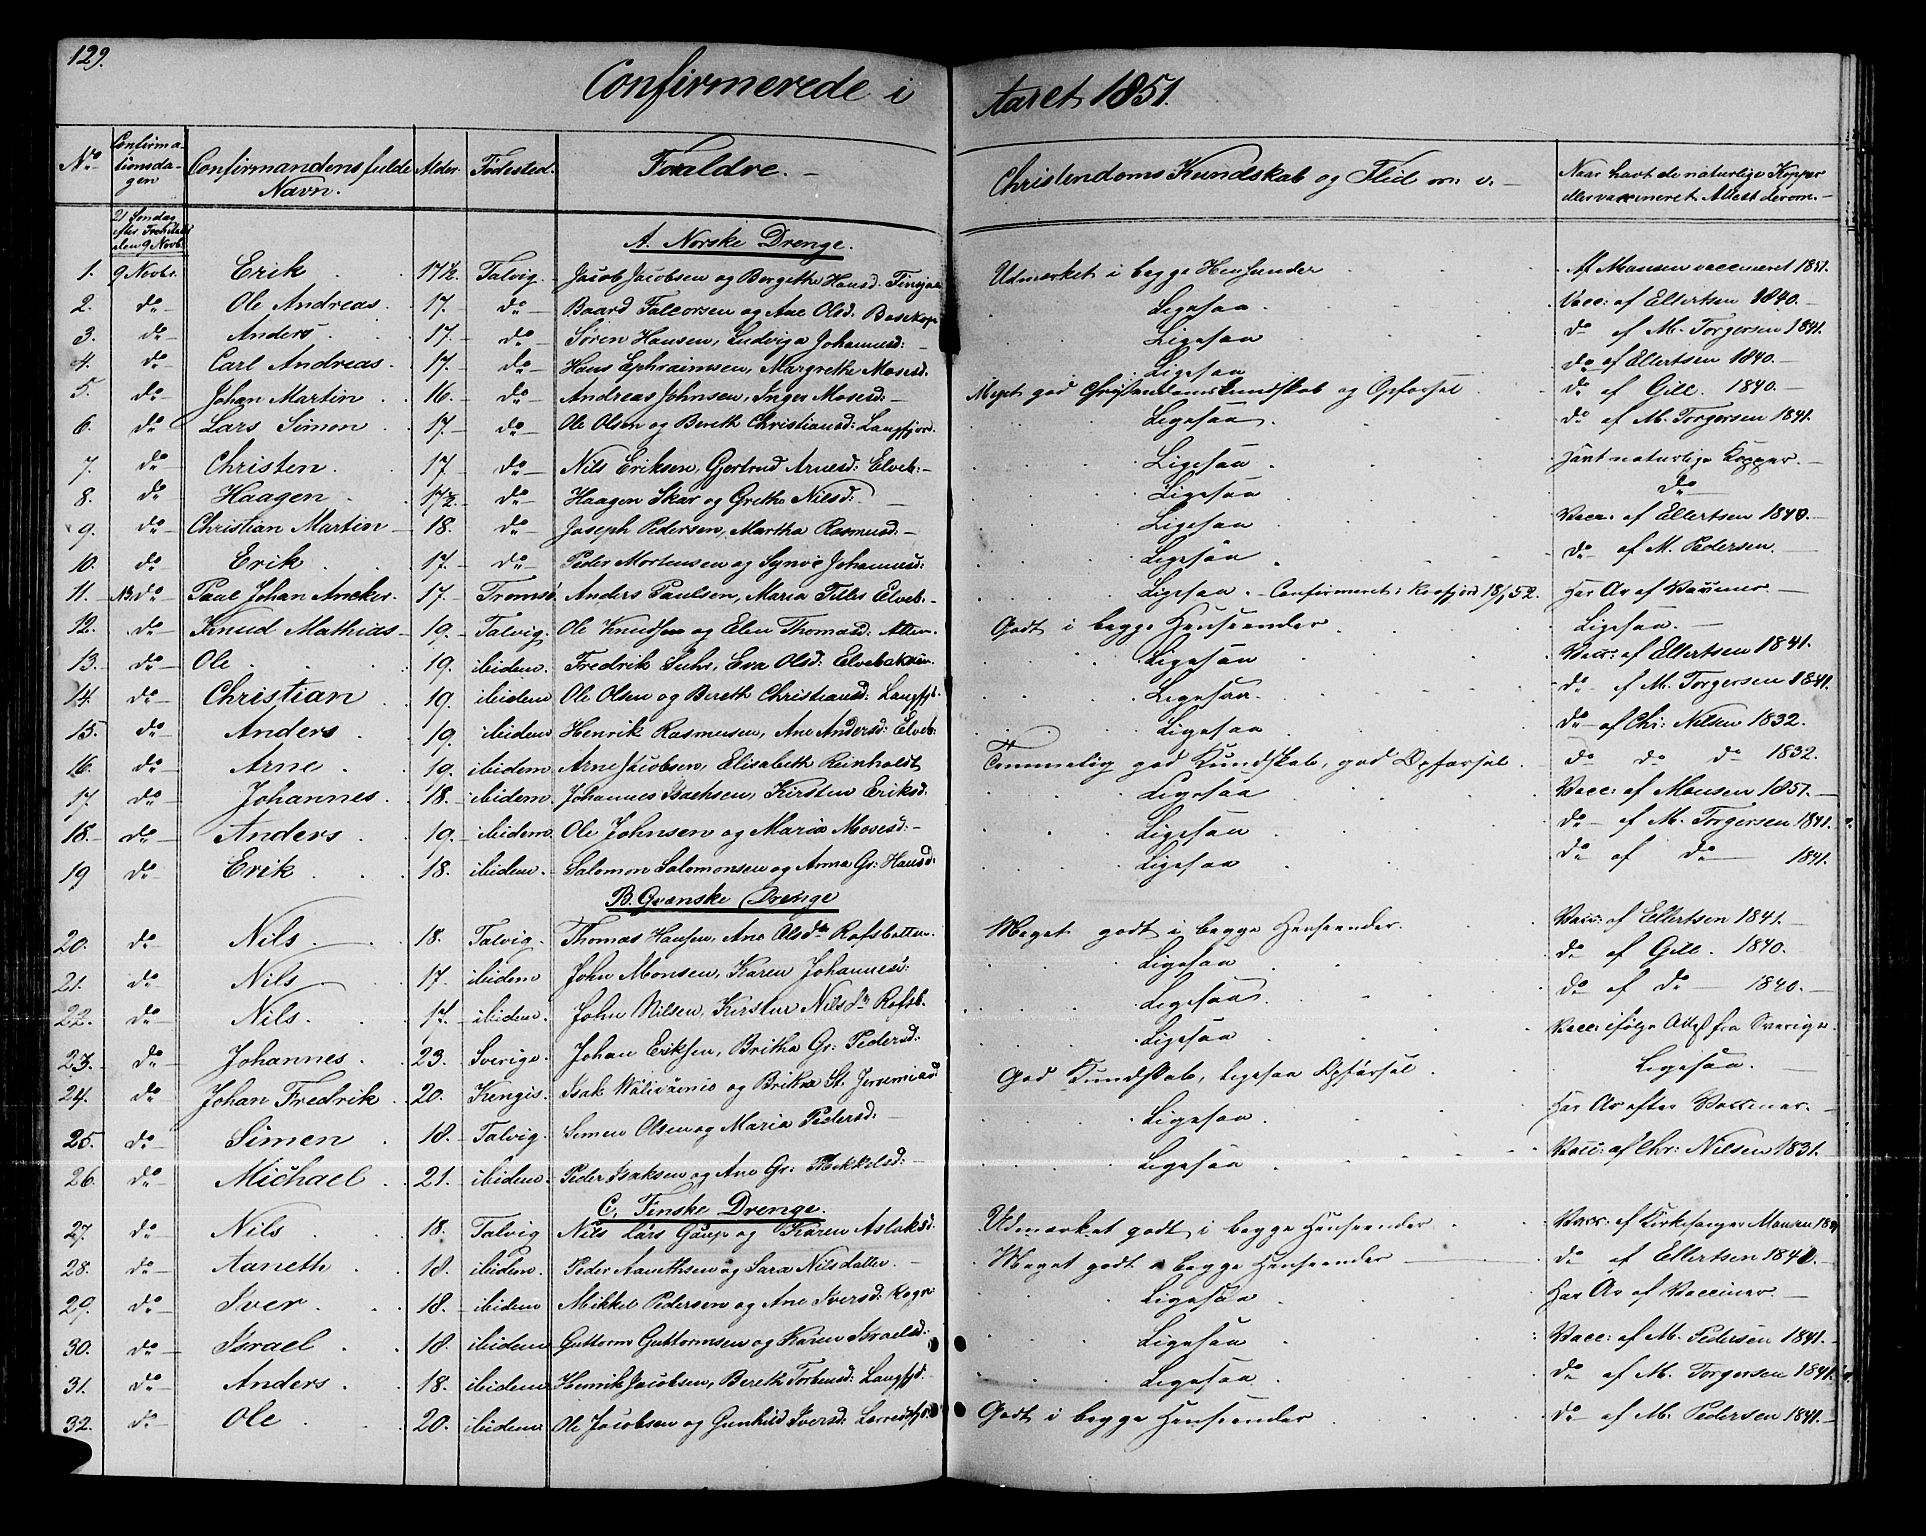 129.
Confirmerede i Aaret 1851.
No Confirmationsdagen Confirmandens fulde Navn. Alder Fødested. Forældre. Christendoms Kundskab og Flid m. v. Naar havt de naturlige Kopper eller vaccineret Attest derom.
21 Søndag efter Trefoldigh den 9 Novbr
A. Norske Drenge.
1. 9 Novbr. Erik 17½ Talvig. Jacob Jacobsen og Bergethe Hansd: Udmærket i begge Henseender Af Monsen vaccineret 1851.
2. do Ole Andreas 17. do Baard Falcorsen og Ane Olsd. Bosekop Ligesaa Vacc: af Ellertsen 1840.
3. do Anders 17. do Søren Hansen, Ludviga Johannesd: Ligesaa do af M. Torgersen 1841.
4. do Carl Andreas 17. do Hans Ephraimsen, Margrethe Mosesd. Ligesaa do af Ellertsen 1840.
5. do Johan Martin 16. do Andreas Johnsen, Inger Mosesd: Meget god Christendomskundskab og Opførsel do af Gill. 1840.
6. do Lars Simon 17. do Ole Olsen og Bereth Christiansd: Langfjord. Ligesaa do af M. Torgersen 1841.
7. do Christen 17. do Nils Eriksen, Gjertrud Arnesd: Elveb: Ligesaa Havt naturlige Kopper.
8. do Haagen 17½ do Haagen Skar og Grethe Nilsd: Ligesaa do
9. do Christian Martin 18. do Joseph Pedersen, Martha Rasmusd. Ligesaa Vacc: af Ellertsen 1840.
10. do Erik 17. do Peder Mortensen og Synøe Johannesd: Ligesaa do af M. Pedersen.
11. NB. do Paul Johan Ancker. 17. Tromsø. Anders Paulsen, Maria Elveb. Ligesaa. Confirmeret i 18/1 52. Har Ar af Vacciner.
12. do Knud Mathias 19. Talvig. Ole Knudsen og Elen Thomasd: Alten. Godt i begge Henseender Ligesaa.
13. do Ole 19. ibidem. Fredrik Suhr, Eva Olsd: Elvebakken. Ligesaa Vacc: af Ellertsen 1841.
14. do Christian 19. ibidem Ole Olsen og Bereth Christiansd. Langfj. Ligesaa. do af M. Torgersen 1841.
15. do Anders 19. ibidem Henrik Rasmussen, Ane Andersd: Elveb: Ligesaa do af Chr: Nilsen 1832.
16. do Arne 19. ibidem. Arne Jacobsen, Elisabeth Reinholdt Temmelig god Kundskab, god Opførsel do do do 1832.
17 do Johannes. 18. ibidem. Johannes Isachsen, Kirsten Eriksd. Ligesaa Vacc: af Monsen 1851.
18. do Anders 19. ibidem. Ole Johnsen og Maria Mosesd: Ligesaa do af M. Torgersen 1841.
19 do Erik 18. ibidem. Salomon Salomonsen og Anna Gr: Hansd: Ligesaa do af do 1841.
B. Qvænske Drenge
20. do Nils 18. Talvig. Thomas Hansen, Ane Olsdr Rafsbotten. Meget godt i begge Henseender. Vacc: af Ellertsen 1841.
21. do Nils 17. ibidem John Monsen, Karen Johannesd: Ligesaa do af Gill. 1840.
22. do Nils. 17. ibidem. John Nilsen, Kirsten Nilsdr Rafsb. Ligesaa do af do 1840.
23. do Johannes. 23. Sverige. Johan Eriksen, Britha Gr: Pedersd: Ligesaa Vacc: ifølge Attest fra Sverige.
24. do Johan Fredrik 20. Kengis. Isak og St. Jeremiasd God Kundskab, ligesaa Opførsel Ligesaa.
25. do Simen 18. Talvig. Simen Olsen og Maria Pedersd: Ligesaa Har Ar efter Vacciner.
26. do Michael 21. ibidem. Peder Isaksen og Ane Gr: Mikkelsd: Ligesaa Vacc: af Chr: Nilsen 1831.
C. Finske Drenge.
27. do Nils 18. Talvig Nils Lars Gaup og Karen Aslaksd. Udmærket godt i begge Henseender Vacc: af Kirkesanger Monsen
28. do Aaneth 18. ibidem. Peder Aanethsen og Sara Nilsdatter. Meget godt i begge Henseender do af Ellertsen 1840.
29. do Iver 18. ibidem. Mikkel Pedersen og Ane Iversd: Ligesaa Har Ar af Vacciner.
30. do Israel 18. ibidem Guttorm Guttormsen og Karen Israelsd. Ligesaa Vacc: af M. Pedersen 1841.
31. do Anders 18. ibidem Henrik Jacobsen, Bereth Torbensd: Langfjd. Ligesaa do af M. Torgersen 1841.
32. do Ole 20. ibidem Ole Jacobsen og Gunhild Iversd: Godt i begge Henseender do af M. Pedersen 1841.